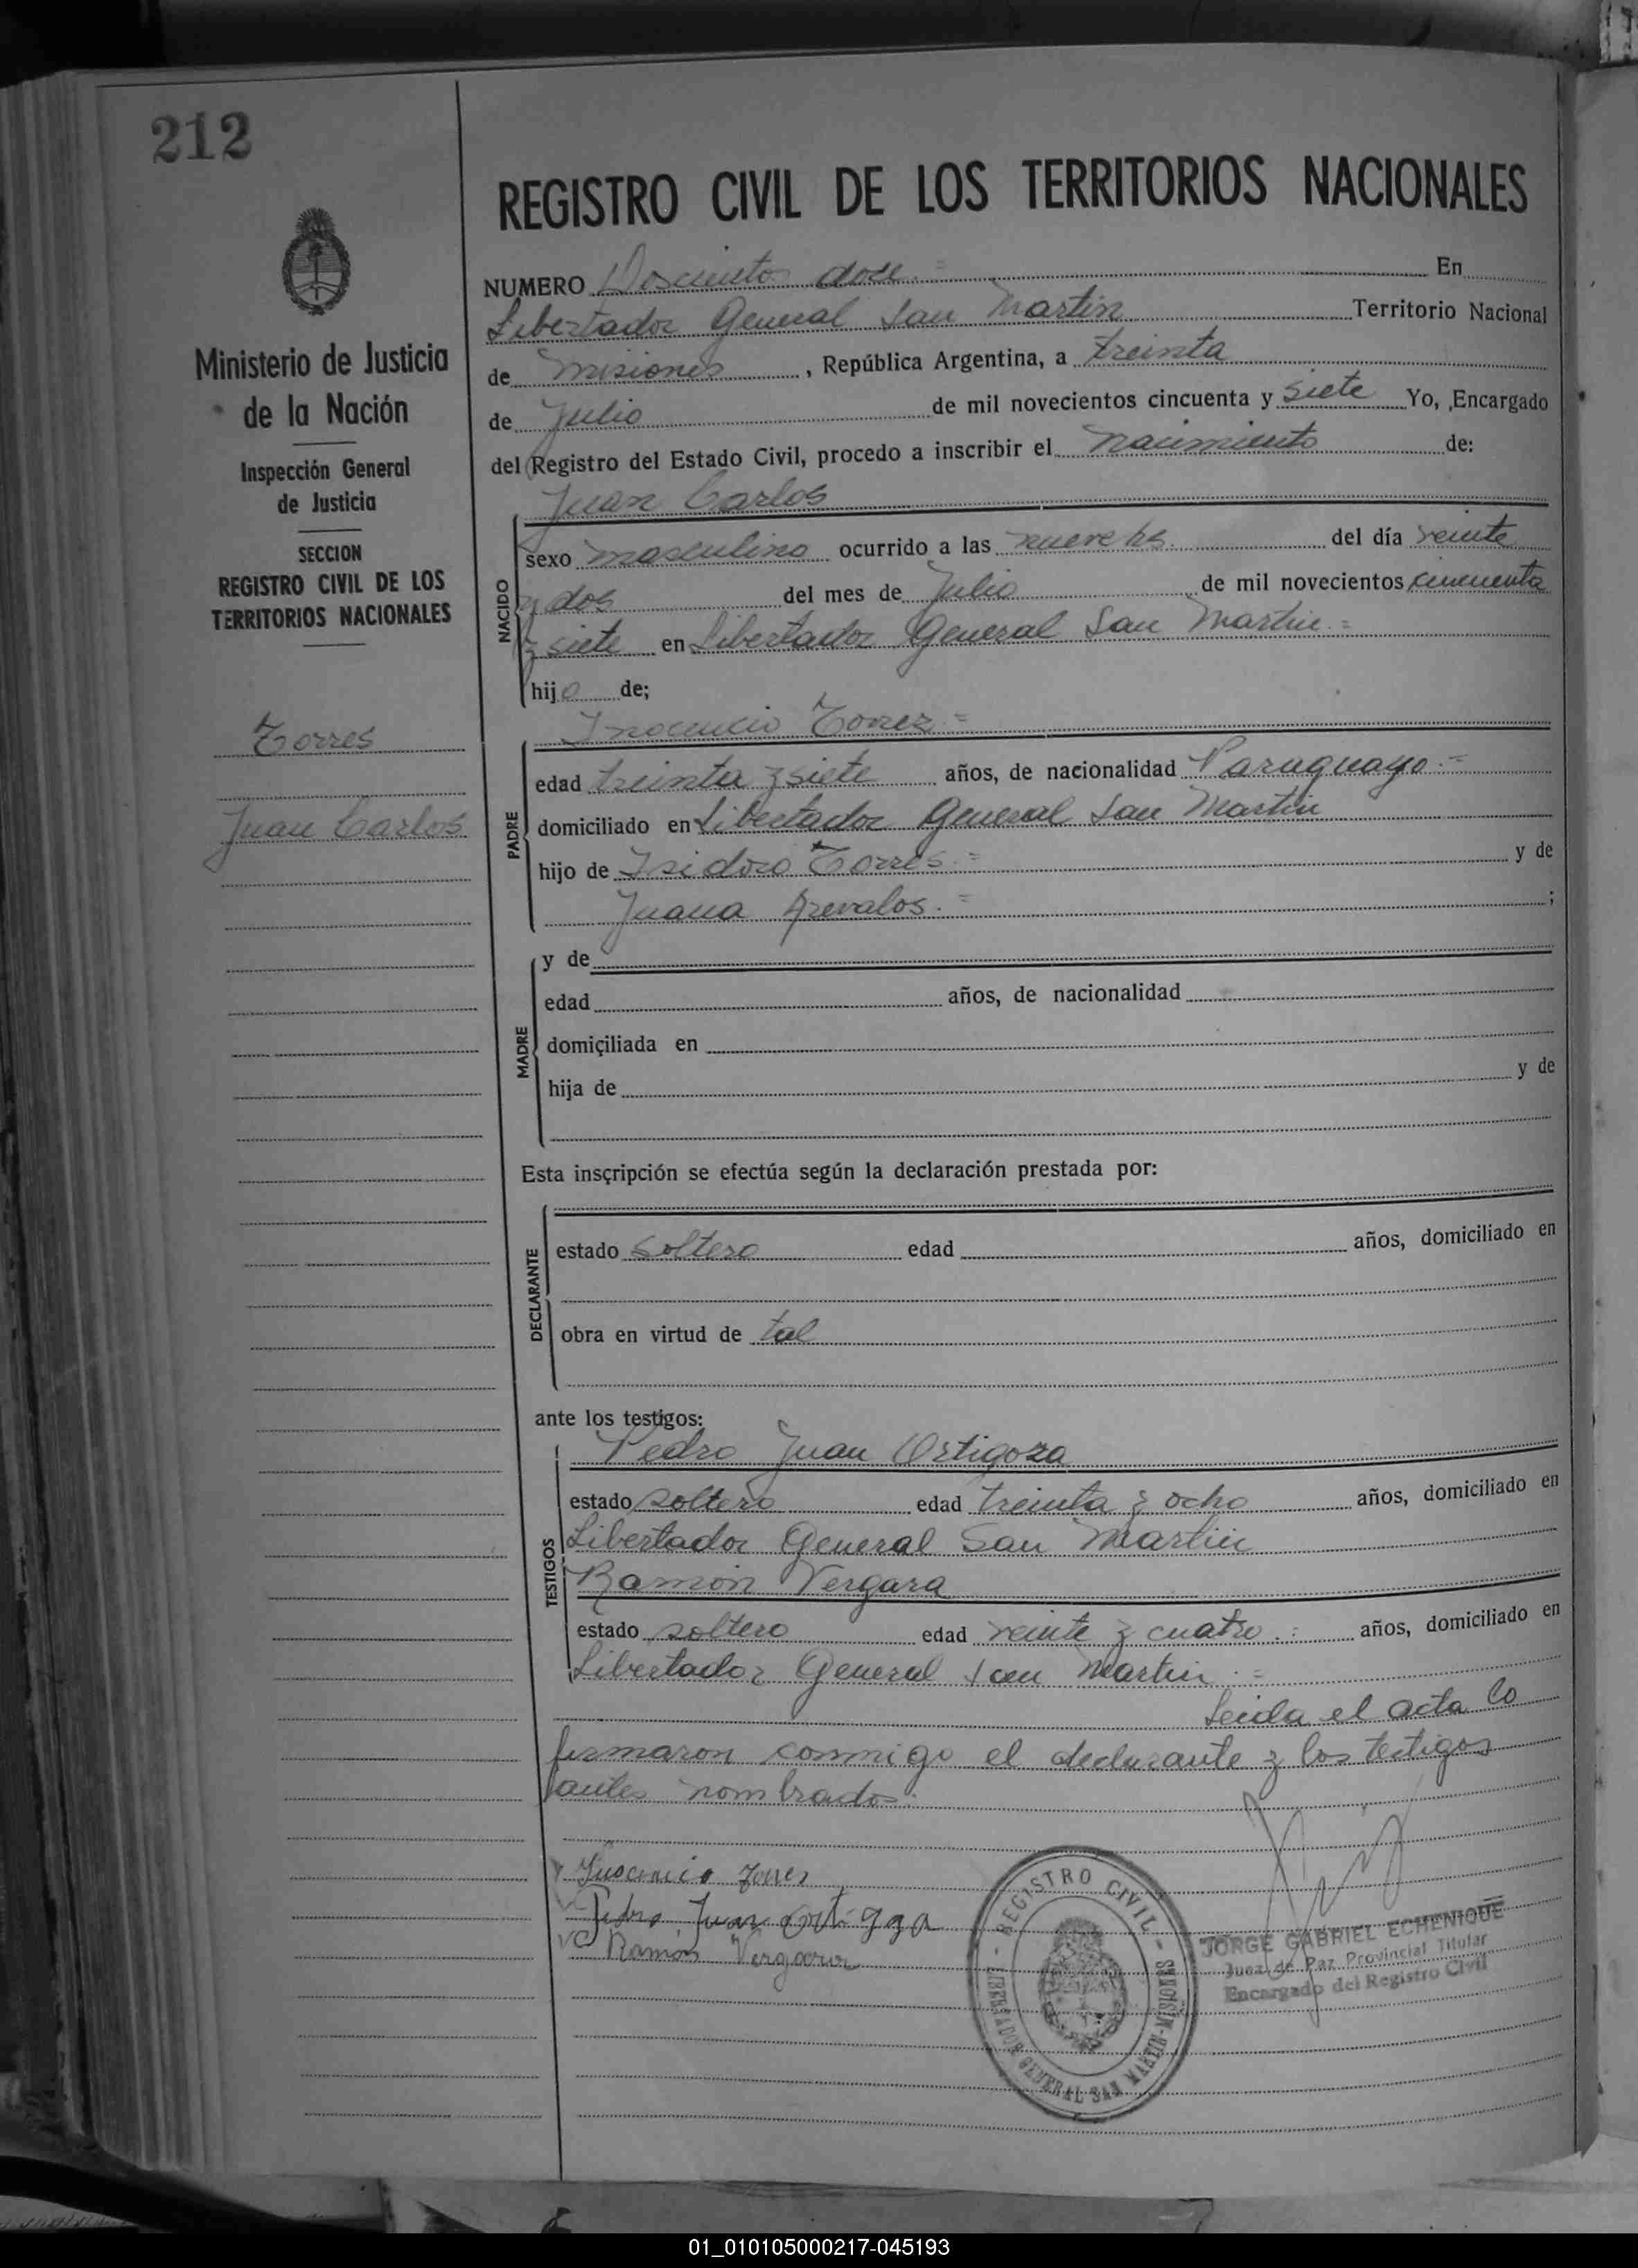 212
REGISTRO CIVIL DE LOS TERRITORIOS NACIONALES
Ministerio de Justicia
de la Nación
Inspección General
de Justicia
SECCION
REGISTRO CIVIL DE LOS
TERRITORIOS NACIONALES
Torres
Juan Carlos
NUMERO Doscientos doce = En
Libertador General San Martin Territorio Nacional
de Misiones, República Argentina, a treinta
de Julio de mil novecientos cincuenta y siete Yo, Encargado
del Registro del Estado Civil, procedo a inscribir el nacimiento de:
Juan Carlos
NACIDO
sexo masculino ocurrido a las nueve hs. del día veinte
y dos del mes de Julio de mil novecientos cincuenta
y siete en Libertador General San Martin =
hijo de;
Inocencio Torrez =
PADRE
edad treinta y siete años, de nacionalidad Paraguayo. =
domiciliado en Libertador General San Martin
hijo de Isidoro Torres. = y de
Juana Arevalos. = ;
MADRE
y de
edad años, de nacionalidad
domiciliada en
hija de y de
Esta inscripción se efectúa según la declaración prestada por:
DECLARANTE
estado soltero edad años, domiciliado en
obra en virtud de tal
ante los testigos:
Pedro Juan Ortigoza
TESTIGOS
estado soltero edad treinta y ocho años, domiciliado en
Libertador General San Martin
Ramón Vergara
estado soltero edad veinte y cuatro años, domiciliado en
Libertador General San Martin =
Leida el acta lo
firmaron conmigo el declarante y los testigos
antes nombrados.
Inocencio Torres
Pedro Juan Ortigoza
Ramón Vergara
REGISTRO CIVIL
LIBERTADOR GENERAL SAN MARTIN - MISIONES
JORGE GABRIEL ECHENIQUE
Juez de Paz Provincial Titular
Encargado del Registro Civil
01_010105000217-045193